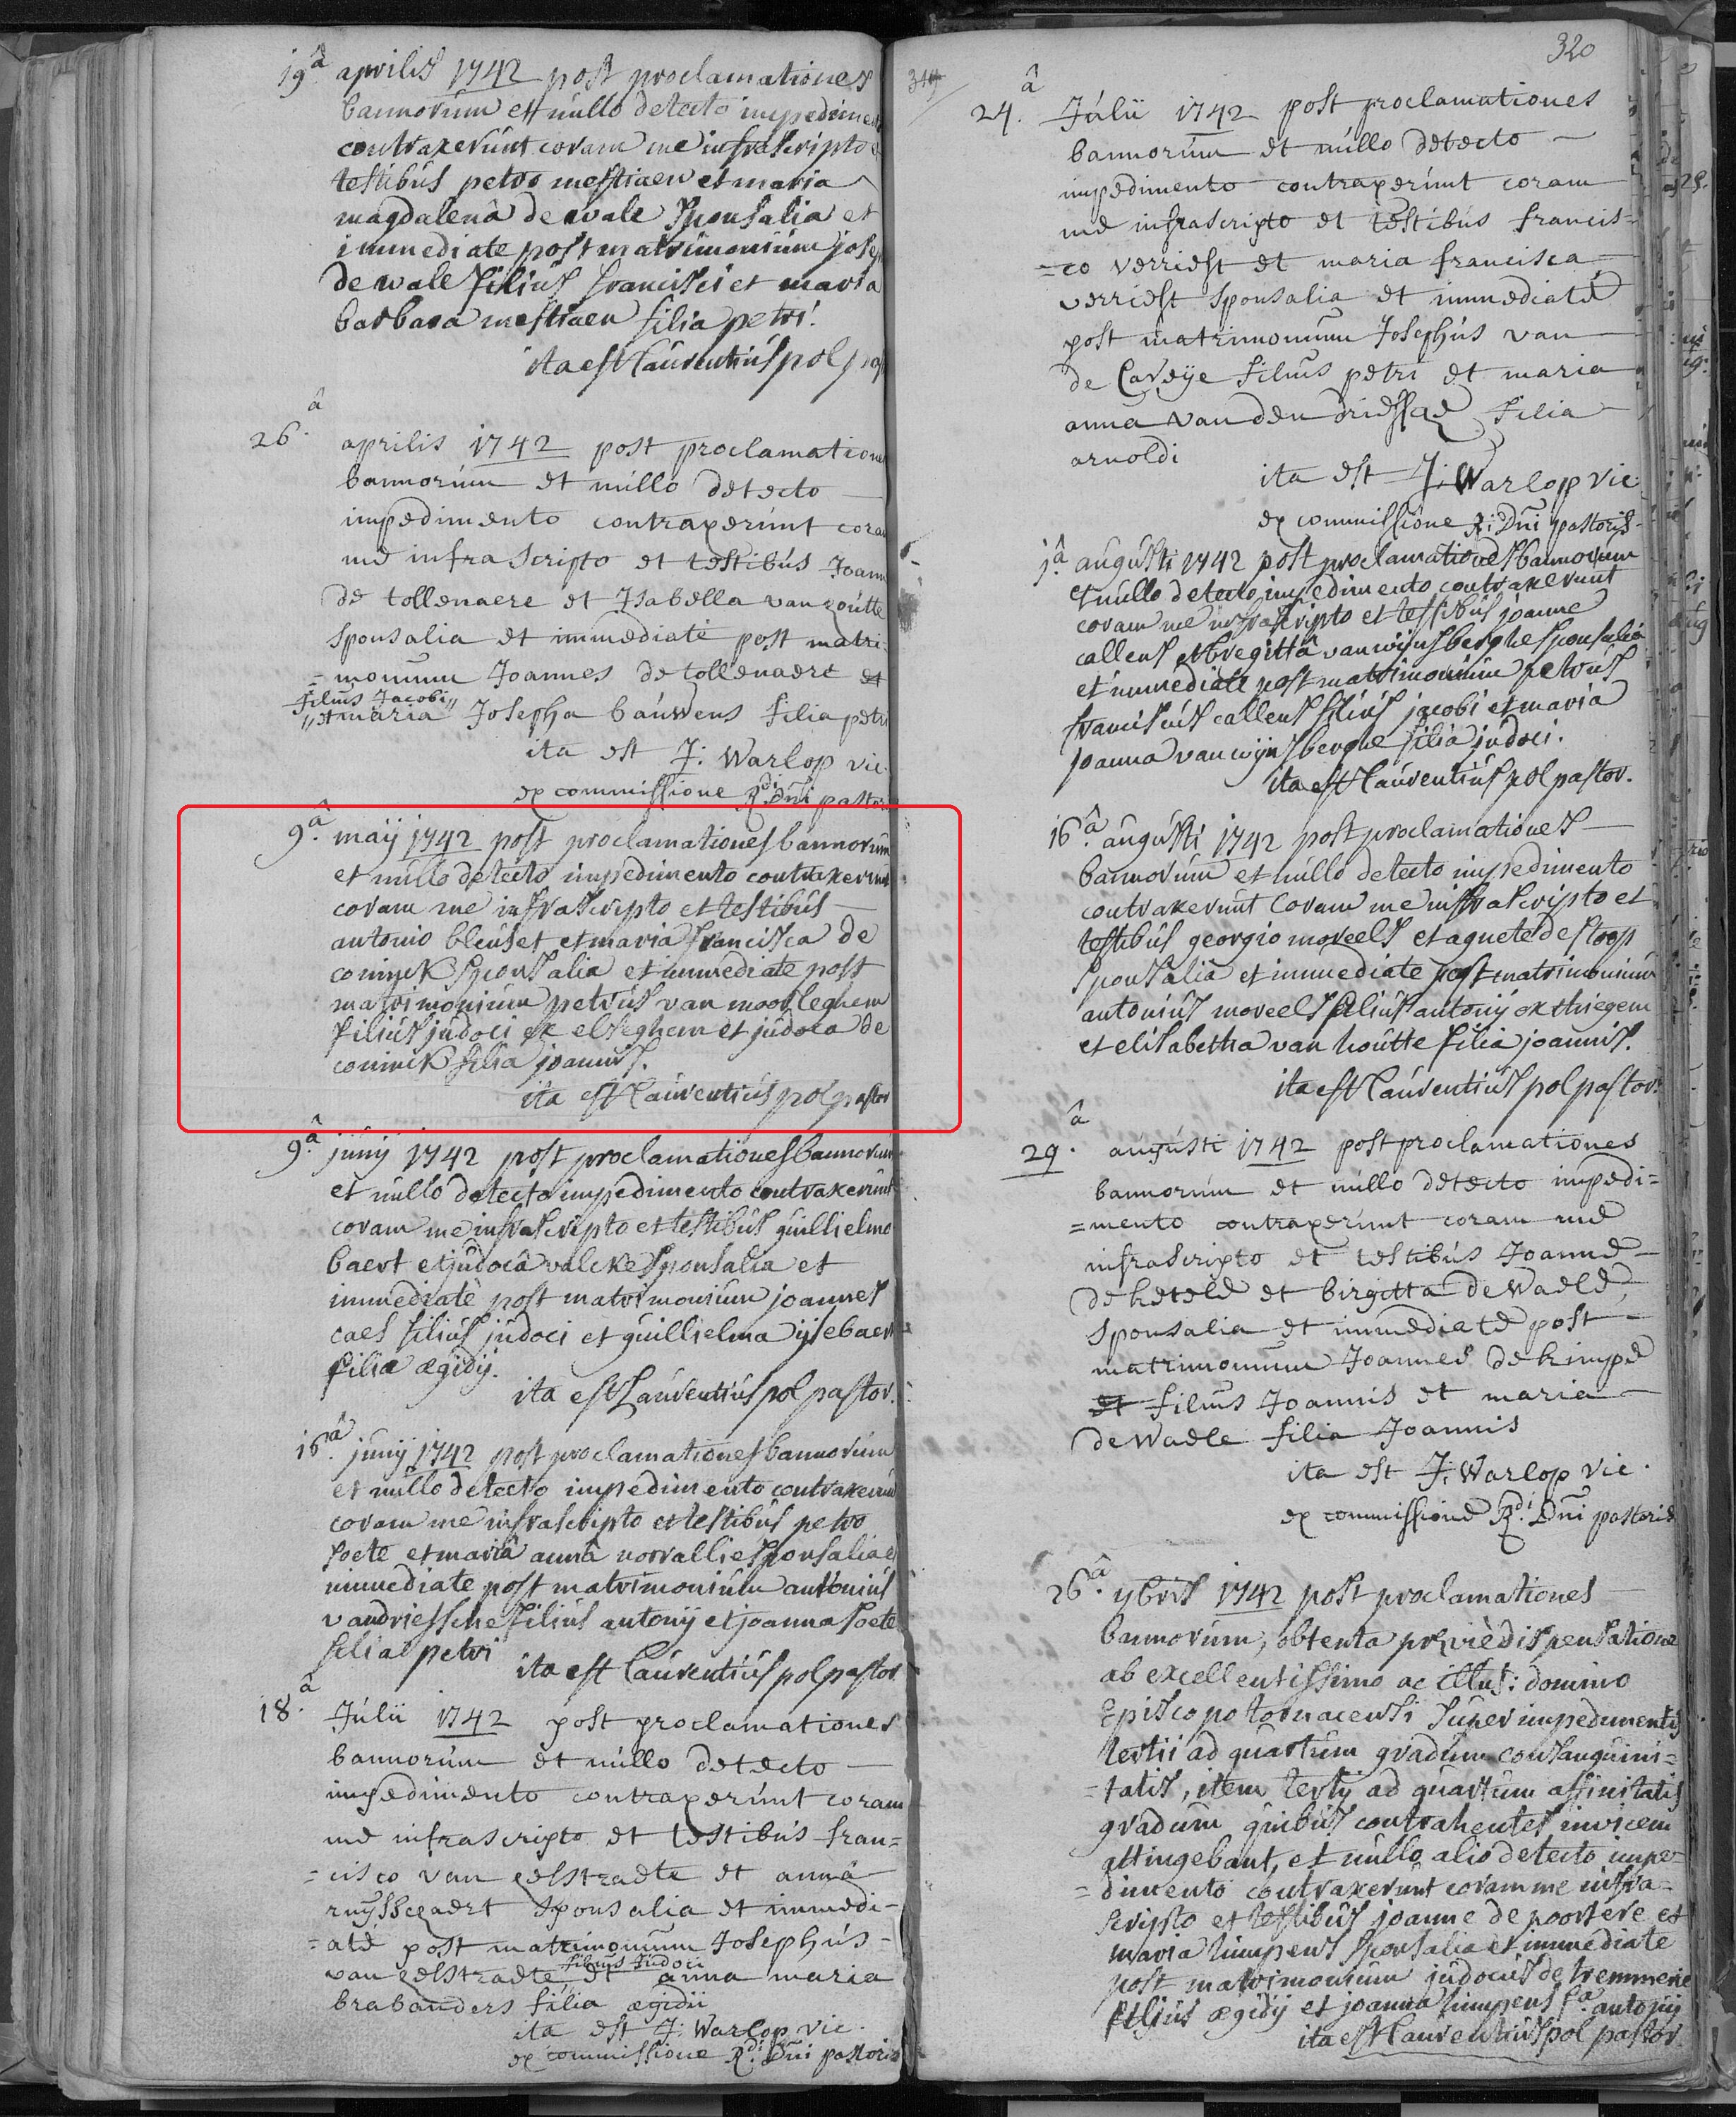 19â aprilis 1742 post proclamationes
bannorum et nullo detecto impedimen
contraxerunt coram me infrascripto
testibus petro mestiaen et maria
magdalenâ de wale sponsalia et
immediate post matrimonium jose
de wale filius francisci et maria
barbara mestiaen filia petri.
ita est laurentius pol pas
26.â aprilis 1742 post proclamatione
bannorum et nullo detecto
impedimento contraxerunt cora
me infrascripto et testibus Joann
de tollenaere et Isabella van houtte
sponsalia et immediate post matri-
=monium Joannes de tollenaere et
filius Jacobi
et maria Josepha bauwens filia petri
ita est J: Warlop vic.
ex commissione R.di Dni pastor
9.â maij 1742 post proclamationes bannorum
et nullo detecto impedimento contraxerunt
coram me infrascripto et testibus
antonio bleuset et maria francisca de
coninck sponsalia et immediate post
matrimonium petrus van moorleghem
filius judoci ex elseghem et judoca de
coninck filia joannis.
ita est laurentius pol pastor
9.â junij 1742 post proclamationes bannorum
et nullo detecto impedimento contraxerunt
coram me infrascripto et testibus guillielmo
baert et judocâ valcke sponsalia et
immediatè post matrimonium joannes
caes filius judoci et guillielma ijsebaert
filia ægidij.
ita est Laurentius pol pastor.
16.â junij 1742 post proclamationes bannorum
et nullo detecto impedimento contraxerun
coram me infrascripto et testibus petro
soete et mariâ annâ norvallie sponsalia e
immediate post matrimonium antonius
vandriessche filius antonij et joanna soete
filia petri
ita est laurentius pol pastor
18.â Julii 1742 post proclamationes
bannorum et nullo detecto
impedimento contraxerunt coram
me infrascripto et testibus fran=
=cisco van eelstraete et annâ
ruysschaert sponsalia et immedi-
=atè post matrimonium Josephus
filius Judoci
van eelstraete, et anna maria
brabanders filia ægidii
ita est J: Warlop vic.
ex commissione R.di Dni pastoris
320
319
24.â Julii 1742 post proclamationes
bannorum et nullo detecto
impedimento contraxerunt coram
me infrascripto et testibus francis=
=co verriest et maria francisca
verriest sponsalia et immediatè
post matrimonium Josephus van
de Caveije filius petri et maria
anna van den driessche filia
arnoldi
ita est J: Warlop vic
ex commissione R: Dni pastoris
1.â augusti 1742 post proclamationes bannorum
et nullo detecto impedimento contraxerunt
coram me infrascripto et testibus joanne
callens et bregittâ van wijnsberghe sponsalia
et immediate post matrimonium petrus
franciscus callens filius jacobi et maria
joanna van wijnsberghe filia judoci.
ita est laurentius pol pastor.
16.â augusti 1742 post proclamationes
bannorum et nullo detecto impedimento
contraxerunt coram me infrascripto et
testibus georgio moreels et agnete de stoop
sponsalia et immediate post matrimonium
antonius moreels filius antonij ex thiegem
et elisabetha van houtte filia joannis.
ita est laurentius pol pastor.
29.â augusti 1742 post proclamationes
bannorum et nullo detecto impedi=
=mento contraxerunt coram me
infrascripto et testibus Joanne
de ketele et birgitta de Waele,
sponsalia et immediatè post
matrimonium Joannes de kimpe
et filius Joannis et maria
de Waele filia Joannis
ita est J: Warlop vic.
ex commissione R.di Dni pastoris
26.â 7bris 1742 post proclamationes
bannorum, obtenta prævie dispensatione
ab excellentissimo ac illus: domino
Episcopo tornacensi super impedimentis
tertii ad quartum gradum consanguini=
=tatis, item tertij ad quartum affinitatis
gradum quibus contrahentes invicem
attingebant, et nullo alio detecto impe=
=dimento contraxerunt coram me infra=
scripto et testibus joanne de poortere et
maria limpens sponsalia et immediate
post matrimonium judocus de tremmerie
filius ægidij et joanna limpens f.a antonij
ita est laurentius pol pastor